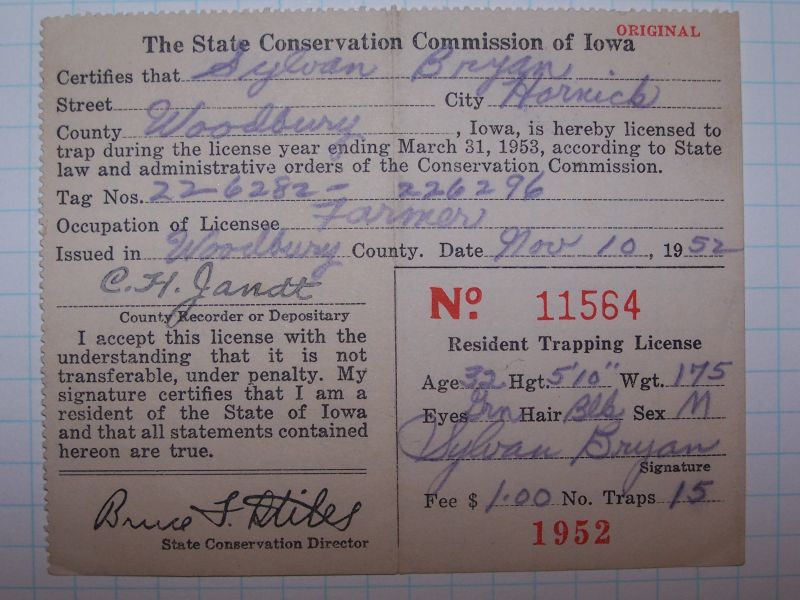 ORIGINAL
The State Conservation Commission of Iowa
Certifies that Sylvan Bryan
Street City Hornick
County Woodbury, Iowa, is hereby licensed to
trap during the license year ending March 31, 1953, according to State
law and administrative orders of the Conservation Commission.
Tag Nos. 22-6282- 226296
Occupation of Licensee Farmer
Issued in Woodbury County. Date Nov 10, 1952
C. H. Jandt
County Recorder or Depositary
I accept this license with the
understanding that it is not
transferable, under penalty. My
signature certifies that I am a
resident of the State of Iowa
and that all statements contained
hereon are true.
Bruce F. Stiles
State Conservation Director
No. 11564
Resident Trapping License
Age 32 Hgt. 5'10" Wgt. 175
Eyes Brn Hair Blk Sex M
Sylvan Bryan
Signature
Fee $ 1.00 No. Traps 15
1952